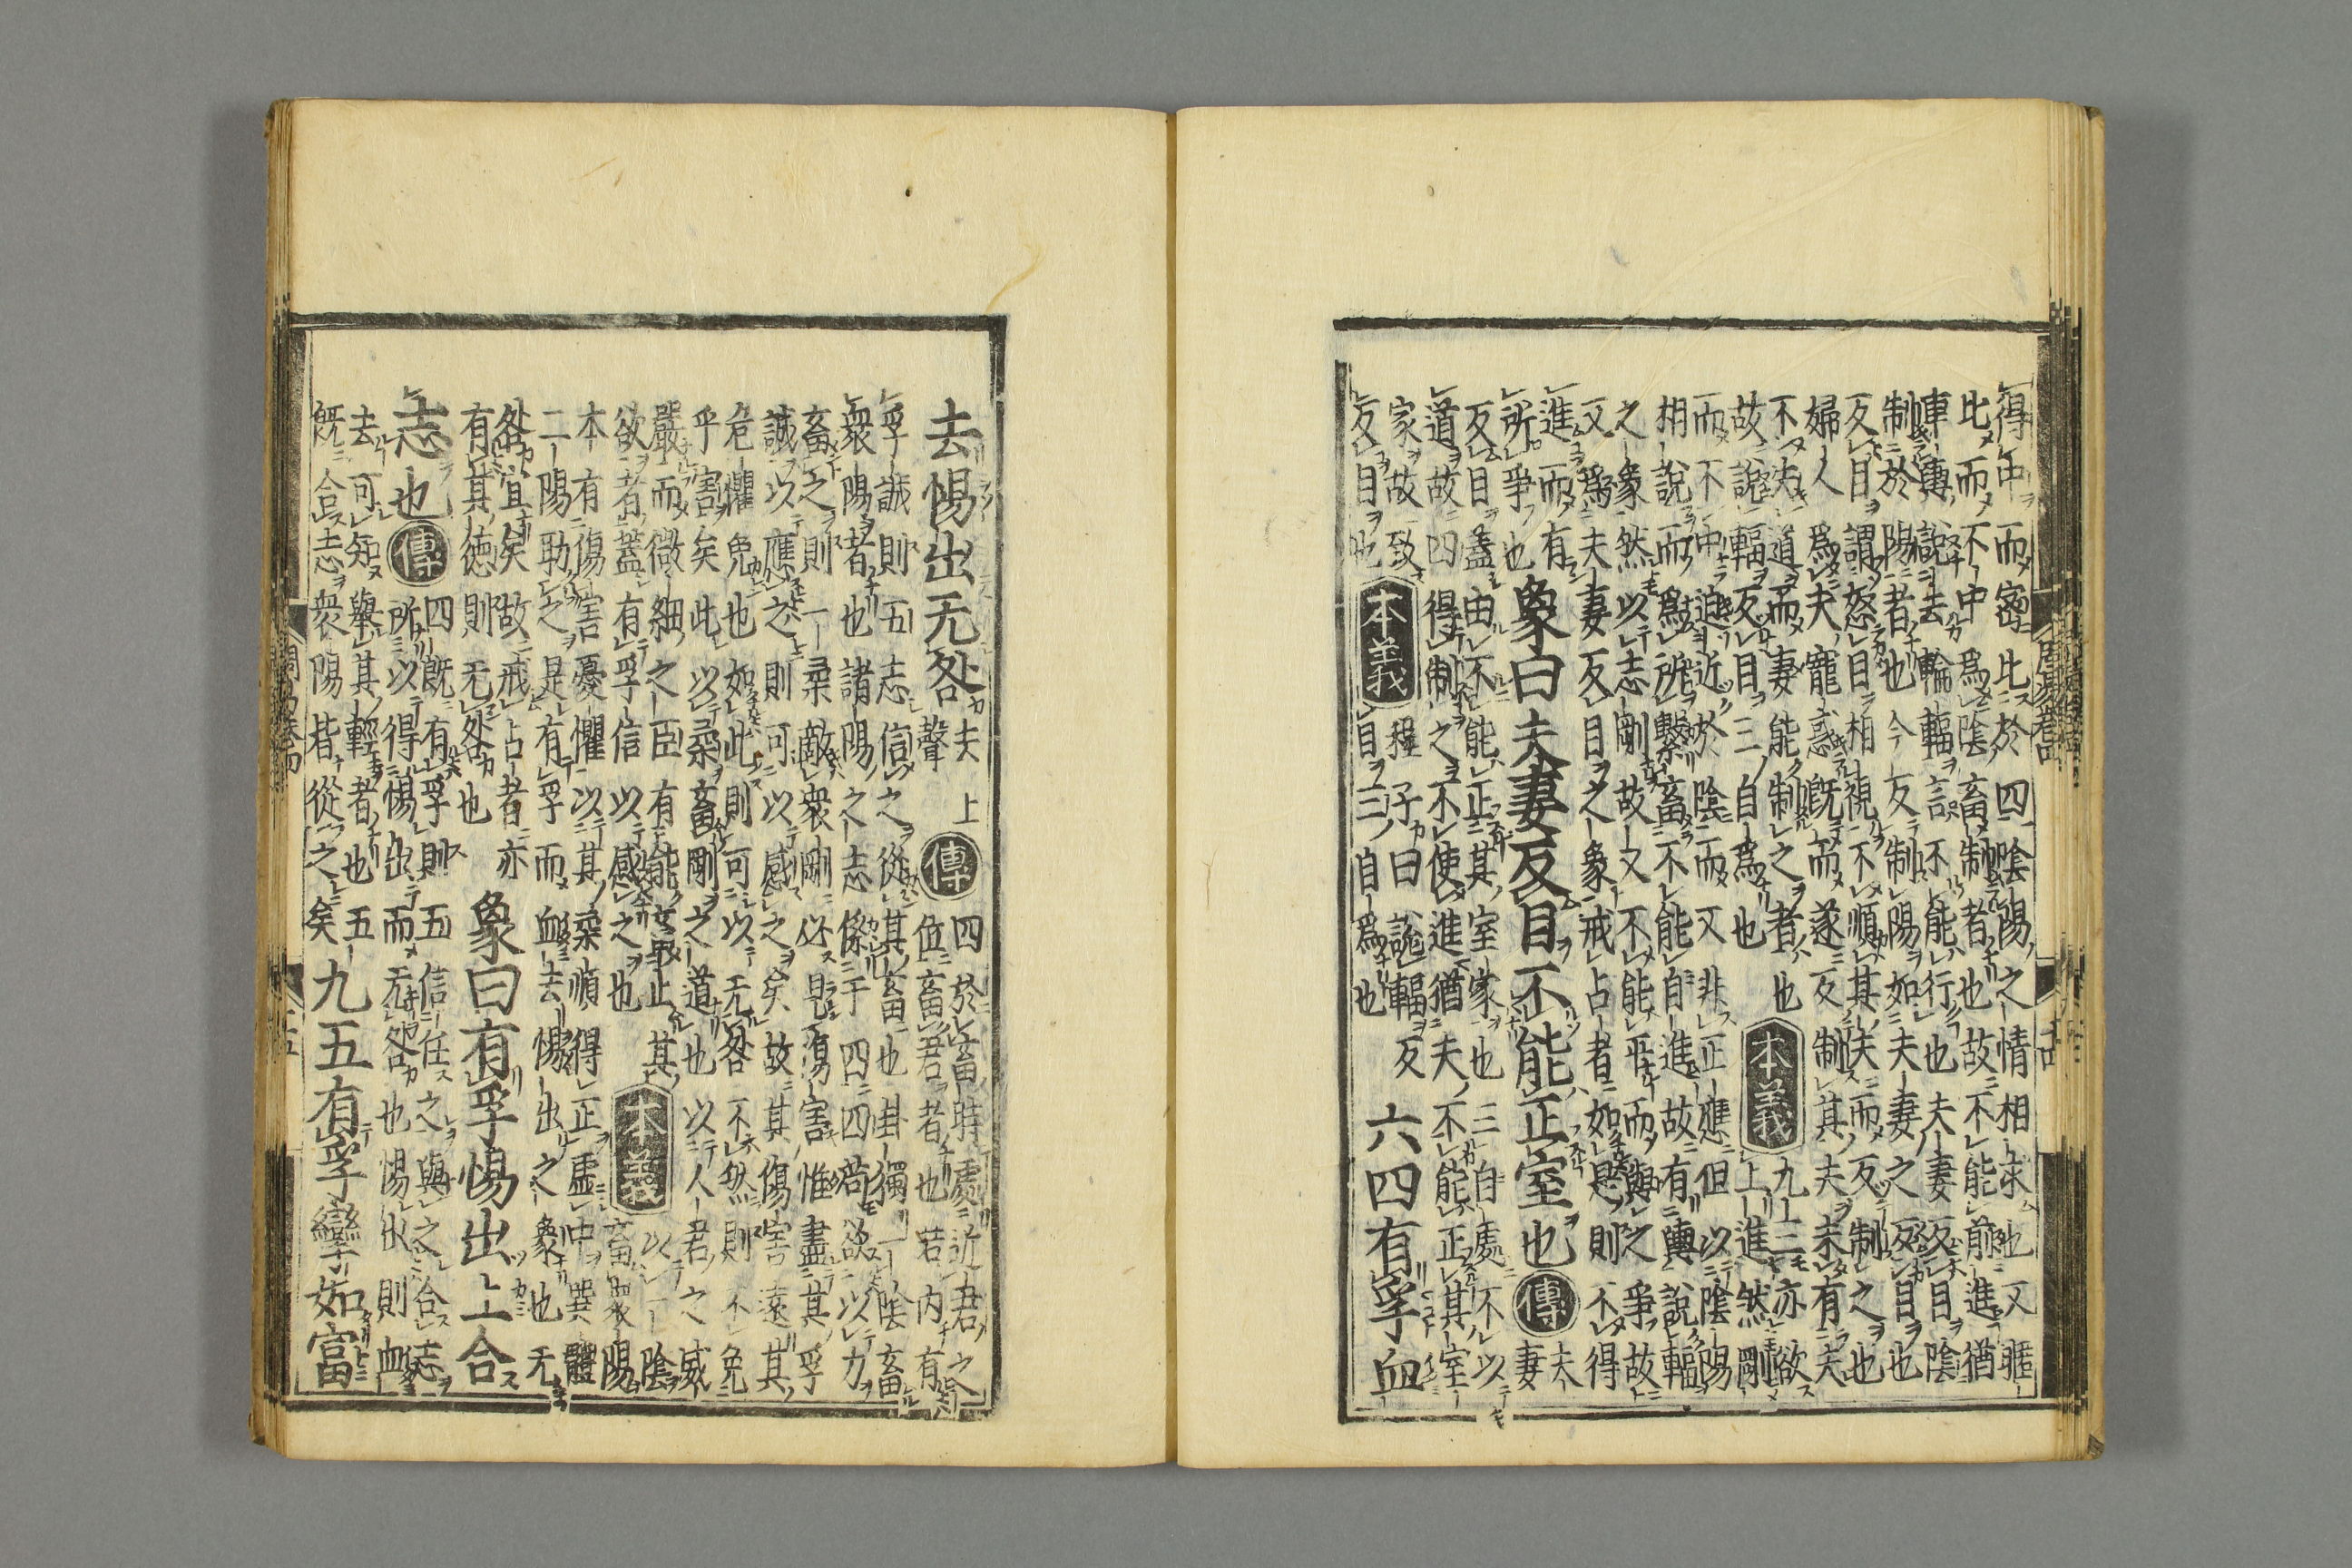 得中而密比於四陰陽之情相求也又暱
比而不中爲陰畜制者也故不能前進猶
車輿說去輪輻言不能行也夫妻反目陰
制於陽者也今反制陽如夫妻之反目也
反目謂怒目相視不順其夫而反制之也
婦人爲夫寵惑既而遂反制其夫未有夫
不失道而妻能制之者也
故說輻反目三自爲也
本義
九三亦欲
上進然剛
而不中迫近於陰而又非正應但以陰陽
相說而爲所繫畜不能自進故有輿說輻
之象然以志剛故又不能平而與之爭故
又爲夫妻反目之象戒占者如是則不得
進而有
所爭也
象曰夫妻反目不能正室也
傳
夫
妻
反目蓋由不能正其室家也三自處不以
道故四得制之不使進猶夫不能正其室
家故致
反目也
本義
程子曰說輻反
目三自爲也
六四有孚血
去惕出无咎
夫上
聲
傳
四於畜時處近君之
位畜君者也若内有
孚誠則五志信之從其畜也卦獨一陰畜
衆陽者也諸陽之志係于四四苟欲以力
畜之則一柔敵衆剛必見傷害惟盡其孚
誠以應之則可以感之矣故其傷害遠其
危懼免也如此則可以无咎不然則不免
乎害矣此以柔畜剛之道也以人君之威
嚴而微細之臣有能畜止其
欲者蓋有孚信以感之也
本義
以一陰
畜衆陽
本有傷害憂懼以其柔順得正虛中巽體
二陽助之是有孚而血去惕出之象也无
咎宜矣故戒占者亦
有其德則无咎也
象曰有孚惕出上合
志也
傳
四既有孚則五信任之與之合志
所以得惕出而无咎也惕出則血
去可知舉其輕者也五
既合志衆陽皆從之矣
九五有孚攣如富